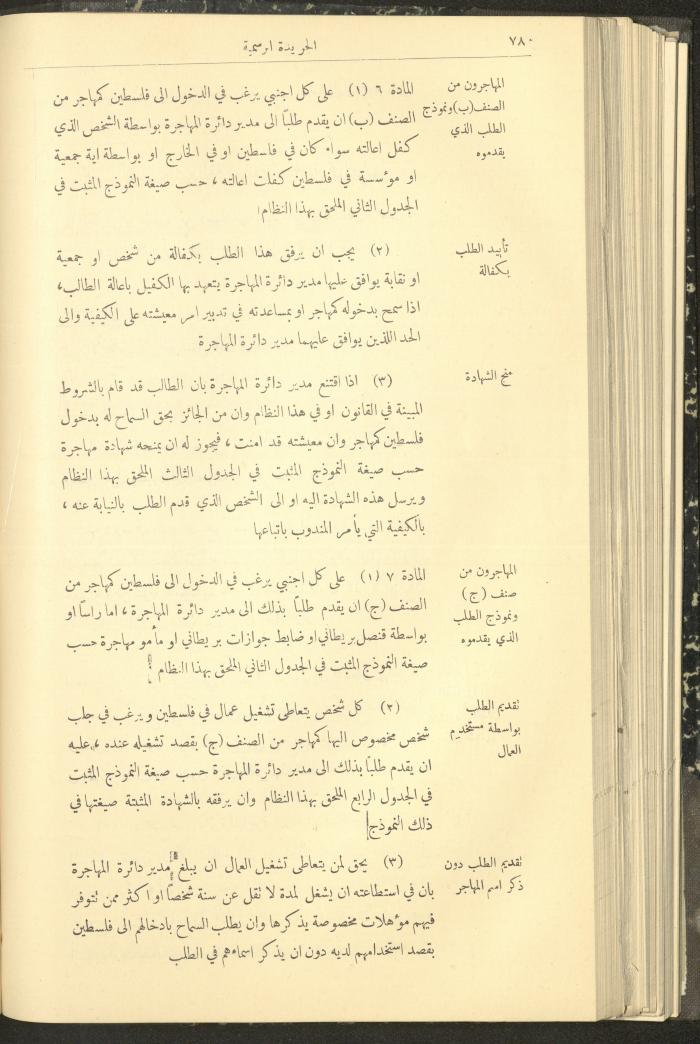 ٧٨٠
الجريدة الرسمية
المهاجرون من
الصنف (ب) ونموذج
الطلب الذي
يقدموه
المادة ٦ (١) على كل اجنبي يرغب في الدخول الى فلسطين كمهاجر من
الصنف (ب) ان يقدم طلبًا الى مدير دائرة المهاجرة بواسطة الشخص الذي
كفل اعالته سواء كان في فلسطين او في الخارج او بواسطة اية جمعية
او مؤسسة في فلسطين كفلت اعالته ، حسب صيغة النموذج المثبت في
الجدول الثاني الملحق بهذا النظام
تأييد الطلب
بكفالة
(٢) يجب ان يرفق هذا الطلب بكفالة من شخص او جمعية
او نقابة يوافق عليها مدير دائرة المهاجرة يتعهد بها الكفيل باعالة الطالب،
اذا سمح بدخوله كمهاجر او بمساعدته في تدبير امر معيشته على الكيفية والى
الحد اللذين يوافق عليهما مدير دائرة المهاجرة
منح الشهادة
(٣) اذا اقتنع مدير دائرة المهاجرة بان الطالب قد قام بالشروط
المبينة في القانون او في هذا النظام وان من الجائز بحق السماح له بدخول
فلسطين كمهاجر وان معيشته قد امنت ، فيجوز له ان يمنحه شهادة مهاجرة
حسب صيغة النموذج المثبت في الجدول الثالث الملحق بهذا النظام
ويرسل هذه الشهادة اليه او الى الشخص الذي قدم الطلب بالنيابة عنه ،
بالكيفية التي يأمر المندوب باتباعها
المهاجرون من
صنف (ج)
ونموذج الطلب
الذي يقدموه
المادة ٧ (١) على كل اجنبي يرغب في الدخول الى فلسطين كمهاجر من
الصنف (ج) ان يقدم طلبًا بذلك الى مدير دائرة المهاجرة ، اما راسًا او
بواسطة قنصل بريطاني او ضابط جوازات بريطاني او مأمور مهاجرة حسب
صيغة النموذج المثبت في الجدول الثاني الملحق بهذا النظام
تقديم الطلب
بواسطة مستخدم
العمال
(٢) كل شخص يتعاطى تشغيل عمال في فلسطين ويرغب في جلب
شخص مخصوص اليها كمهاجر من الصنف (ج) بقصد تشغيله عنده ، عليه
ان يقدم طلبًا بذلك الى مدير دائرة المهاجرة حسب صيغة النموذج المثبت
في الجدول الرابع الملحق بهذا النظام وان يرفقه بالشهادة المثبتة صيغتها في
ذلك النموذج
تقديم الطلب دون
ذكر اسم المهاجر
(٣) يحق لمن يتعاطى تشغيل العمال ان يبلغ مدير دائرة المهاجرة
بان في استطاعته ان يشغل لمدة لا تقل عن سنة شخصًا او اكثر ممن تتوفر
فيهم مؤهلات مخصوصة يذكرها وان يطلب السماح بادخالهم الى فلسطين
بقصد استخدامهم لديه دون ان يذكر اسماءهم في الطلب